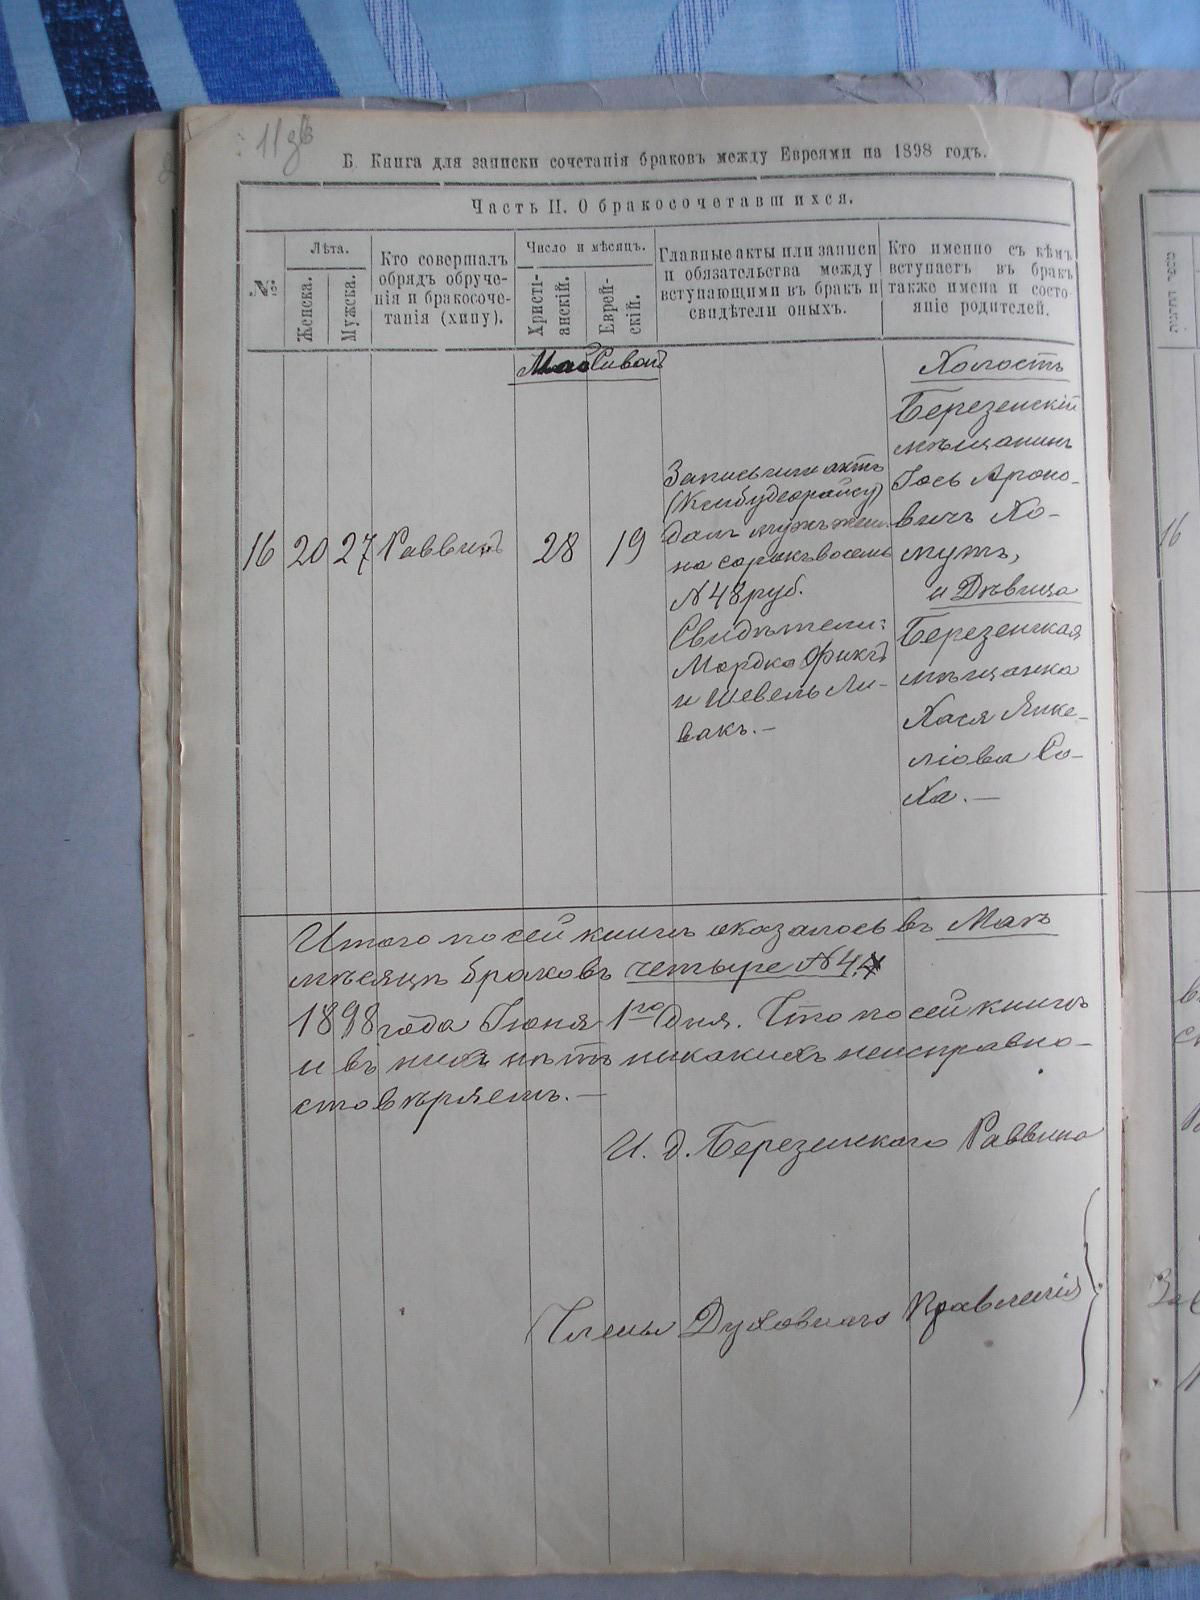 11 зв
Б. Книга для записки сочетанія браковъ между Евреями на 1898 годъ.
Часть II. О бракосочетавшихся.
№
Лѣта.
Женска.
Мужска.
Кто совершалъ
обрядъ обруче-
нія и бракосоче-
танія (хипу).
Число и мѣсяцъ.
Христі-
анскій.
Еврей-
скій.
Главные акты или записи
и обязательства между
вступающими въ бракъ и
свидѣтели оныхъ.
Кто именно съ кѣмъ
вступаетъ въ бракъ
также имена и состо-
яніе родителей.
Май Сиванъ
16
20
27
Раввинъ
28
19
Запись или актъ
далъ мужъ жен.
на сорокъ восемь
№ 48 руб.
Свидѣтели:
Мордко Фикъ
и Шевель Ли-
вакъ. —
Холостъ
Березенскій
мѣщанинъ
Іось Ароно-
вичъ Хо-
мутъ,
и Дѣвица
Березенская
мѣщанка
Хася Янке-
ліова Со-
ха. —
Итого по сей книгѣ оказалось въ Маѣ
мѣсяцѣ браковъ четыре № 4
1898 года Іюня 1го дня. Что по сей книгѣ
и въ нихъ нѣтъ никакихъ неисправно-
И. д. Березенскаго Раввина
Члены Духовнаго Правленія
16